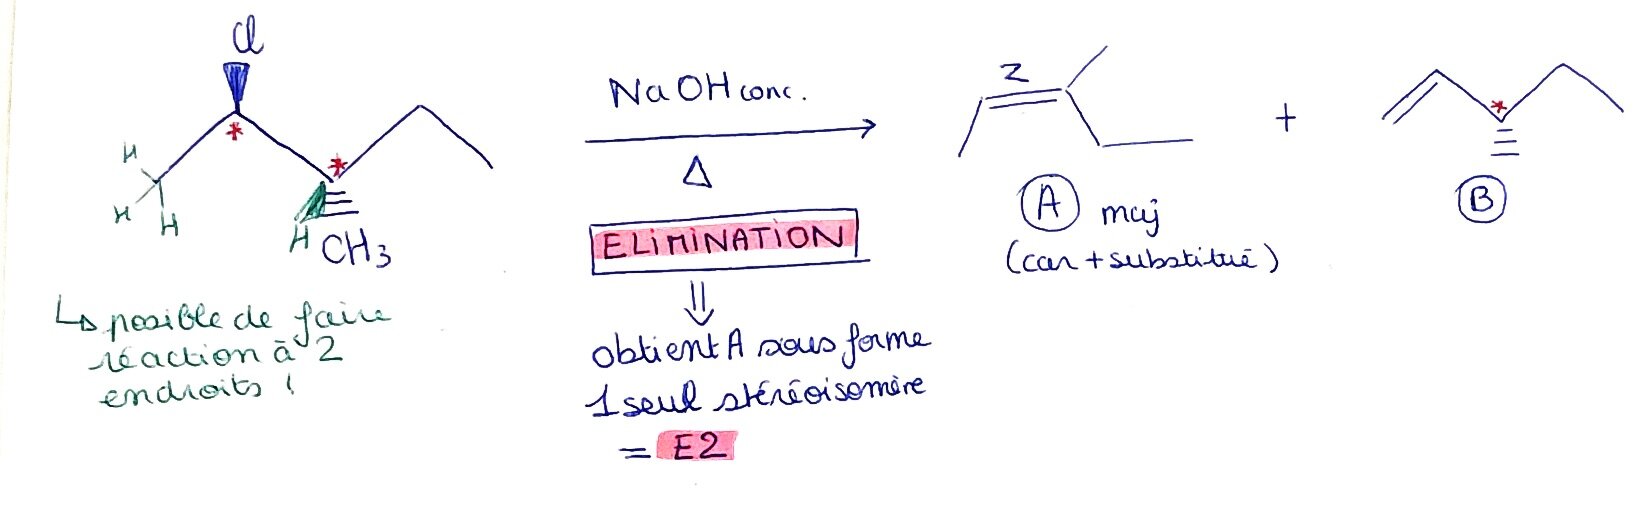 Cl
*
*
H
H
H
H
CH3
↳ possible de faire
réaction à 2
endroits !
NaOH conc.
Δ
ELIMINATION
⇓
obtient A sous forme
1 seul stéréoisomère
= E2
Z
A maj
(car + substitué)
+
*
B